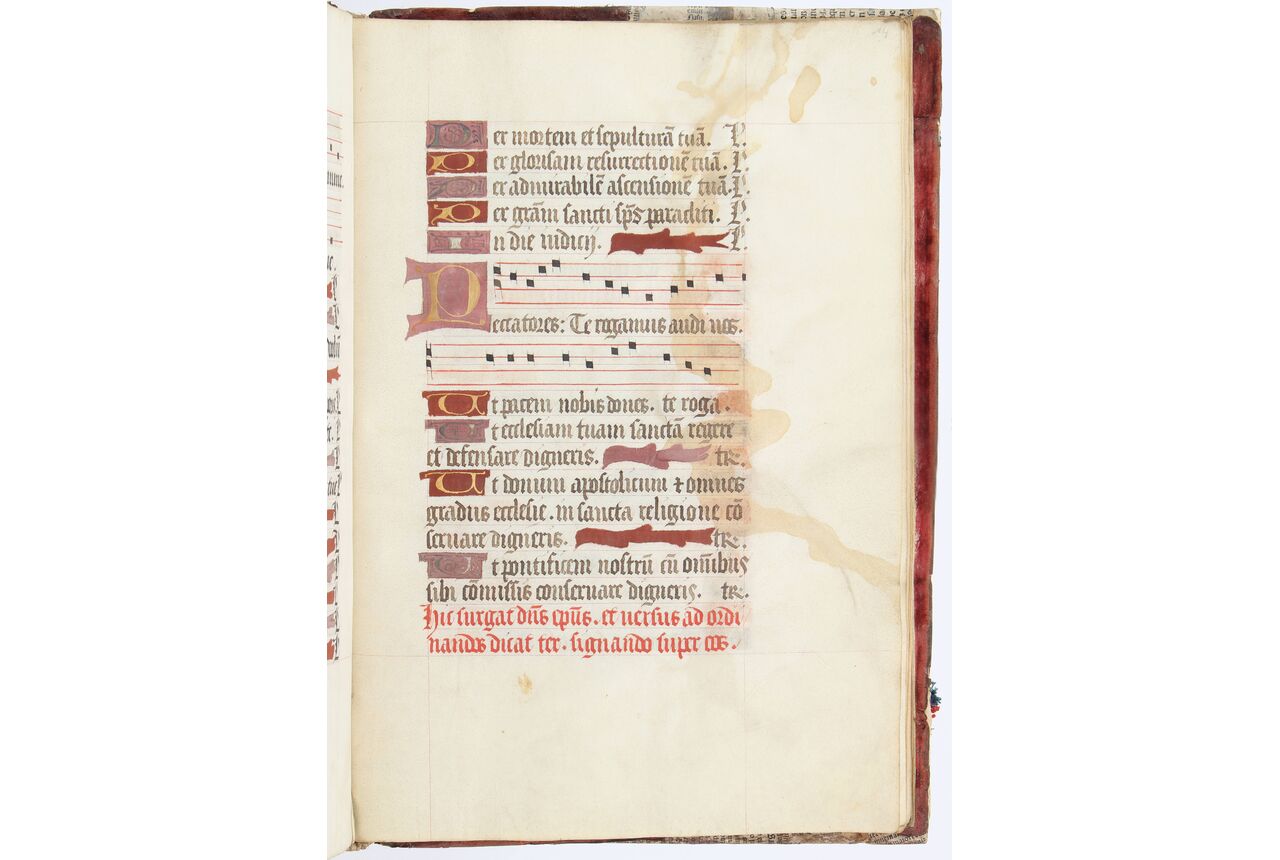 14
Per mortem et sepulturā tuā. P.
Per gloriosam resurrectionē tuā. P.
Per admirabilē ascensionē tuā. P.
Per grām sancti sp̄s paracliti. P.
In die iudicij. P.
Peccatores: Te rogamus audi nos.
Ut pacem nobis dones. te roga.
Ut ecclesiam tuam sanctā regere
et defensare digneris. tR.
Ut domnum apostolicum ⁊ omnes
gradus ecclesie. in sancta religione cō
seruare digneris. tR.
Ut pontificem nostrū cū om̄ibus
sibi cōmissis conseruare digneris. tR.
Hic surgat dn̄s ep̄us. et uersus ad ordi
nandos dicat ter. signando super eos.